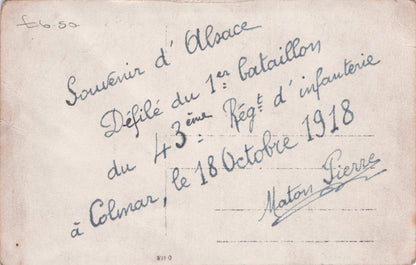 £6.50
Souvenir d'Alsace
Défilé du 1er bataillon
du 43ème Régt d'infanterie
à Colmar, le 18 Octobre 1918
Maton Pierre